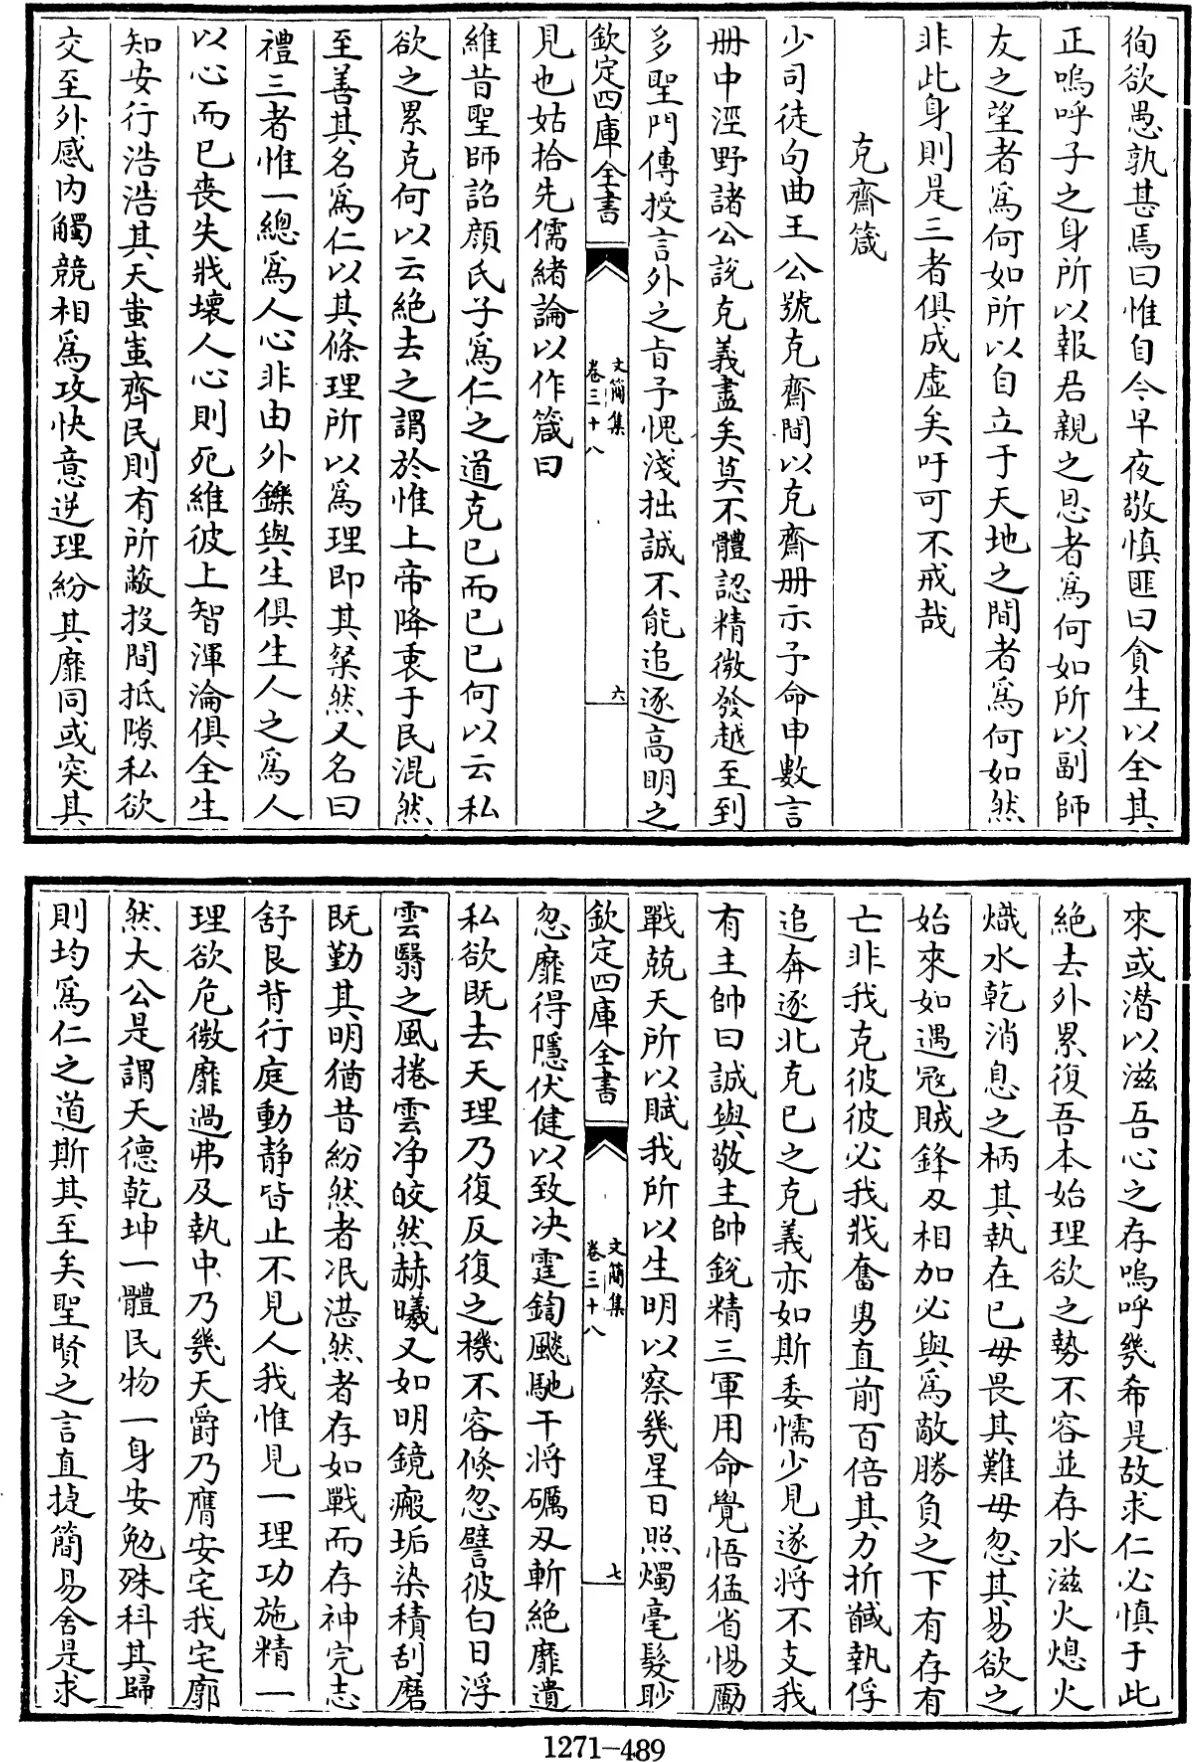 徇欲愚孰甚焉曰惟自今早夜敬慎匪曰貪生以全其
正嗚呼子之身所以報君親之恩者爲何如所以副師
友之望者爲何如所以自立于天地之間者爲何如然
非此身則是三者俱成虛矣吁可不戒哉
克齋箴
少司徒句曲王公號克齋間以克齋册示予命申數言
册中涇野諸公說克義盡矣莫不體認精微發越至到
多聖門傳授言外之旨予愧淺拙誠不能追逐高明之
欽定四庫全書
文簡集
卷三十八
六
見也姑拾先儒緒論以作箴曰
維昔聖師詔顔氏子爲仁之道克已而已已何以云私
欲之累克何以云絶去之謂於惟上帝降衷于民混然
至善其名爲仁以其條理所以爲理即其粲然又名曰
禮三者惟一總爲人心非由外鑠與生俱生人之爲人
以心而已喪失戕壞人心則死維彼上智渾淪俱全生
知安行浩浩其天蚩蚩齊民則有所蔽投間抵隙私欲
交至外感内觸競相爲攻快意逆理紛其靡同或突其
來或潛以滋吾心之存嗚呼幾希是故求仁必慎于此
絶去外累復吾本始理欲之勢不容並存水滋火熄火
熾水乾消息之柄其執在已毋畏其難毋忽其易欲之
始來如遇冦賊鋒刃相加必與爲敵勝負之下有存有
亡非我克彼彼必我戕奮勇直前百倍其力折馘執俘
追奔逐北克已之克義亦如斯委懦少見遂將不支我
有主帥曰誠與敬主帥銳精三軍用命覺悟猛省惕勵
戰兢天所以賦我所以生明以察幾星日照燭毫髮眇
欽定四庫全書
文簡集
卷三十八
七
忽靡得隱伏健以致决霆鍧飈馳干將礪刃斬絶靡遺
私欲既去天理乃復反復之機不容倐忽譬彼白日浮
雲翳之風捲雲净皎然赫曦又如明鏡瘢垢染積刮磨
既勤其明猶昔紛然者泯湛然者存如戰而存神完志
舒艮背行庭動静皆止不見人我惟見一理功施精一
理欲危微靡過弗及執中乃幾天爵乃膺安宅我宅廓
然大公是謂天德乾坤一體民物一身安勉殊科其歸
則均爲仁之道斯其至矣聖賢之言直捷簡易舍是求
1271-489